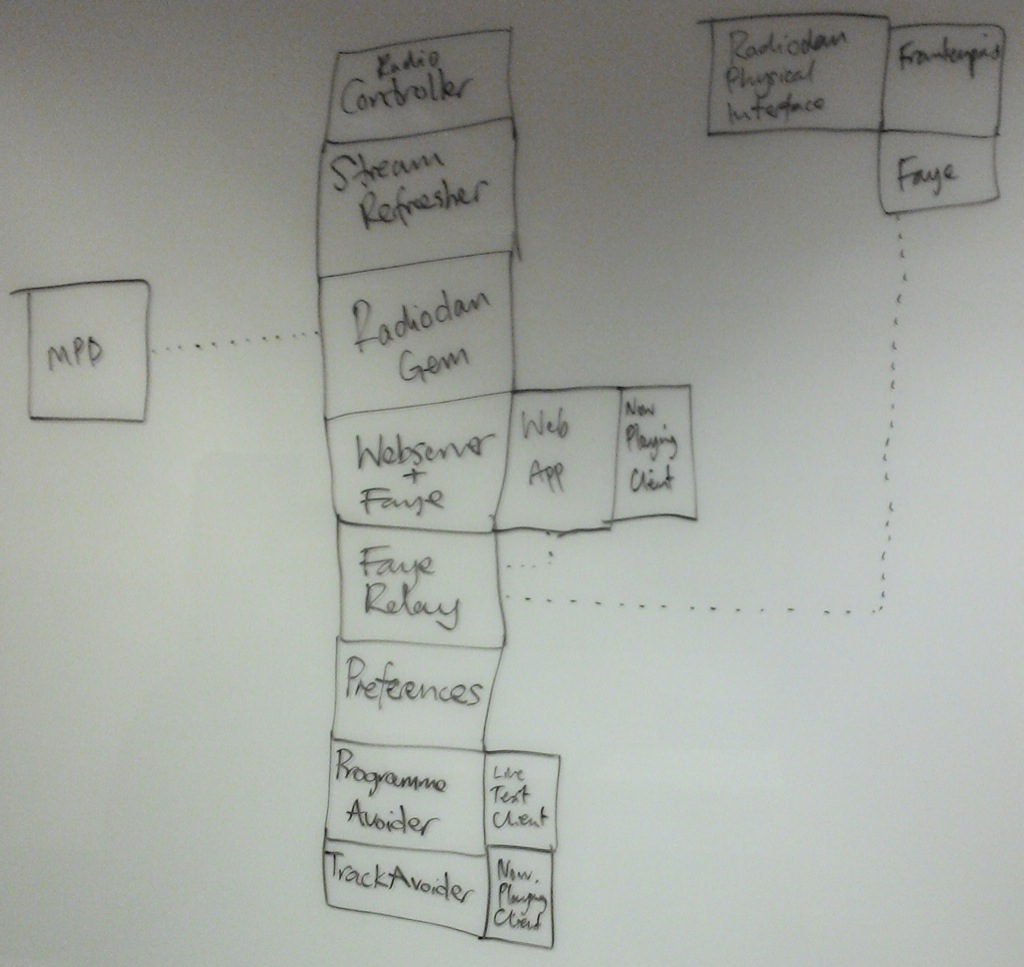 Radio
Controller
Stream
Refresher
Radiodan
Gem
Webserver
+
Faye
Web
App
Now
Playing
Client
Faye
Relay
Preferences
Programme
Avoider
Live
Text
Client
TrackAvoider
Now
Playing
Client
MPD
Radiodan
Physical
Interface
Faye